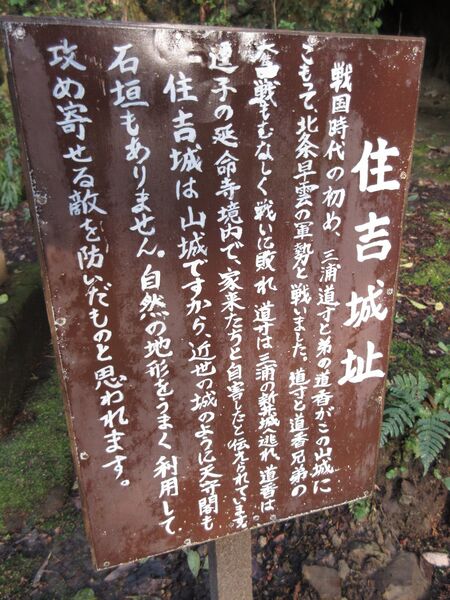 住吉城址
戦国時代の初め、三浦道寸と弟の道香がこの山城に
こもって、北条早雲の軍勢と戦いました。道寸と道香兄弟の
奮戦もむなしく戦いに敗れ、道寸は三浦の新井城へ逃れ、道香は
逗子の延命寺境内で、家来たちと自害したと伝えられています。
住吉城は山城ですから、近世の城のように天守閣も
石垣もありません。自然の地形をうまく利用して
攻め寄せる敵を防いだものと思われます。